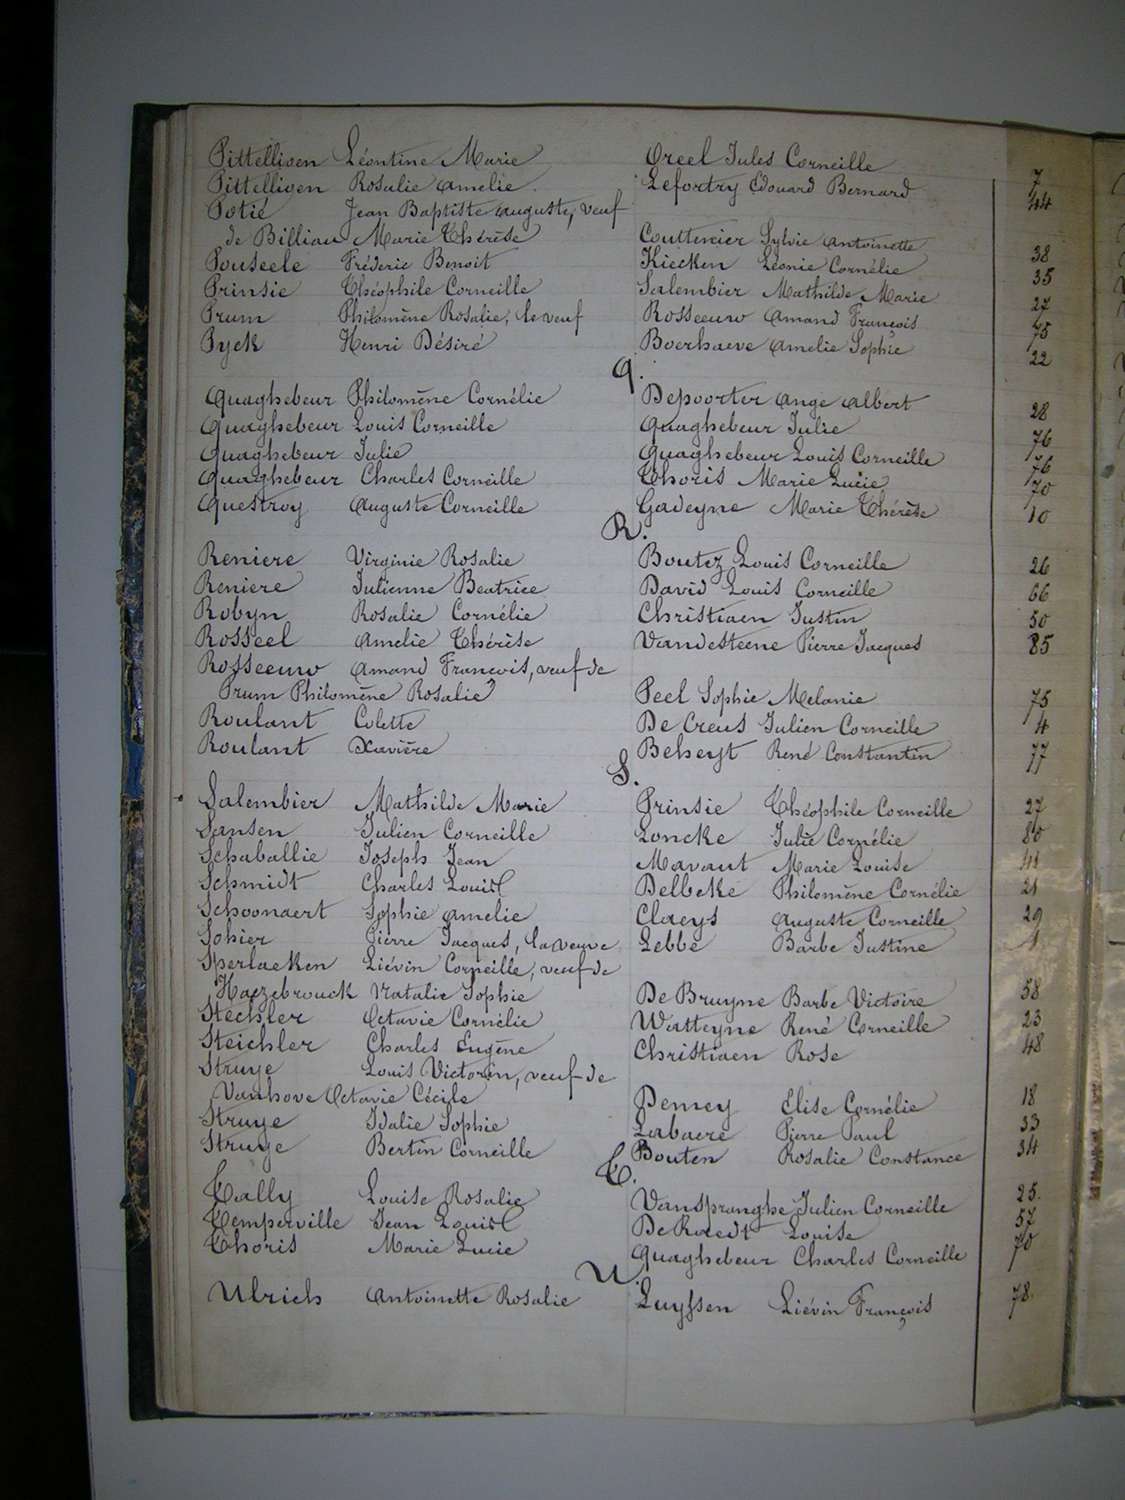 Pittellioen Léontine Marie Creel Jules Corneille 7
Pittellioen Rosalie Amelie. Lefortry Edouard Bernard 44
Potié Jean Baptiste Auguste, veuf
de Billiau Marie Thérèse Couttenier Sylvie Antoinette 38
Pouseele Fréderic Benoit Kiecken Léonie Cornélie 35
Prinsie Théophile Corneille Salembier Mathilde Marie 27
Prum Philomène Rosalie, le veuf Rosseeuw Amand François 75
Pyck Henri Désiré Boerhaeve Amelie Sophie 22
Q.
Quaghebeur Philomène Cornélie Depoorter Ange Albert 28
Quaghebeur Louis Corneille Quaghebeur Julie 76
Quaghebeur Julie Quaghebeur Louis Corneille 76
Quaghebeur Charles Corneille Thoris Marie Lucie 70
Questroy Auguste Corneille Gadeyne Marie Thérèse 10
R.
Reniere Virginie Rosalie Boutez Louis Corneille 26
Reniere Julienne Beatrice David Louis Corneille 66
Robyn Rosalie Cornélie Christiaen Justin 50
Rosseel Amelie Thérèse Vandesteene Pierre Jacques 85
Rosseeuw Amand François, veuf de
Prum Philomène Rosalie Peel Sophie Melanie 75
Roulant Colette De Creus Julien Corneille 4
Roulant Xavière Beheyt René Constantin 77
S.
Salembier Mathilde Marie Prinsie Théophile Corneille 27
Sansen Julien Corneille Loncke Julie Cornélie 80
Schaballie Joseph Jean Mavaut Marie Louise 41
Schmidt Charles Louis Delbeke Philomène Cornélie 21
Schoonaert Sophie Amelie Claeys Auguste Corneille 29
Sohier Pierre Jacques, la veuve Lebbe Barbe Justine 1
Sperlaeken Liévin Corneille, veuf de
Haezebrouck Natalie Sophie De Bruyne Barbe Victoire 58
Stechler Octavie Cornélie Watteyne René Corneille 23
Steichler Charles Eugène Christiaen Rose 48
Struye Louis Victorin, veuf de
Vanhove Octavie Cécile Demey Elise Cornélie 18
Struye Idalie Sophie Labaere Pierre Paul 33
Struye Bertin Corneille Bouten Rosalie Constance 34
T.
Tally Louise Rosalie Vanspranghe Julien Corneille 25.
Temperville Jean Louis De Raedt Louise 57
Thoris Marie Lucie Quaghebeur Charles Corneille 70
U.
Ulrich Antoinette Rosalie Luyssen Liévin François 78.